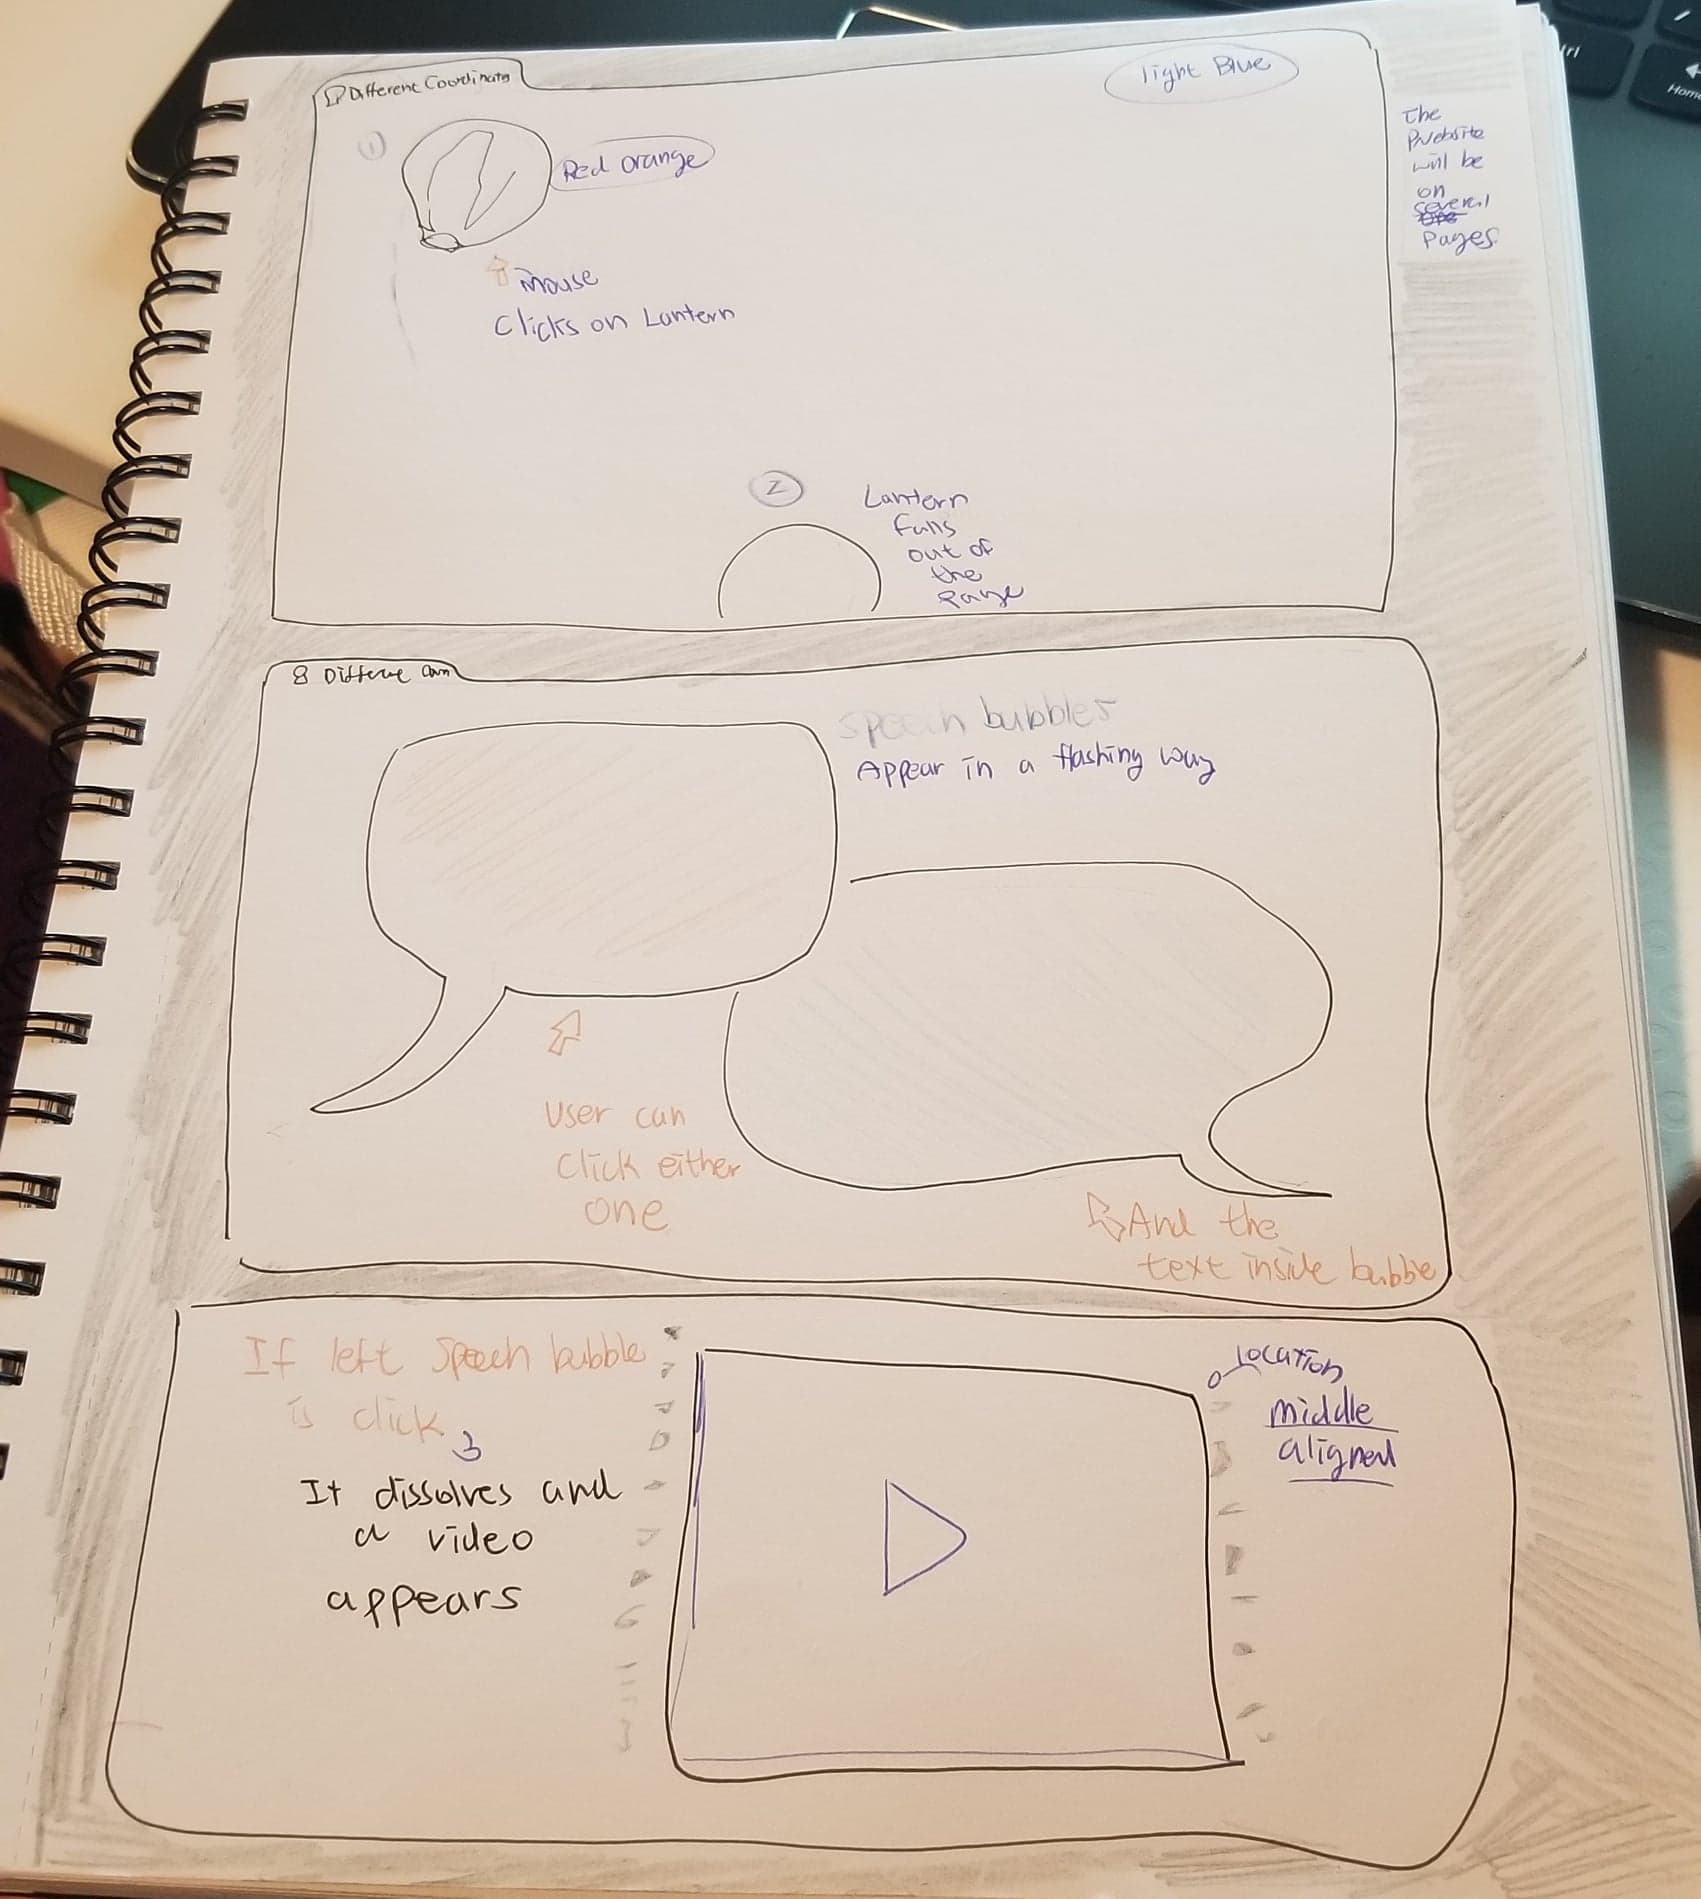 Different Coordinates
light Blue
The
Website
will be
on
several
Pages.
1
Red orange
Mouse
Clicks on Lantern
2
Lantern
Falls
out of
the
Page
8 Differe Com
Speech bubbles
Appear in a flashing way
User can
Click either
one
And the
text inside bubble
If left Speech bubble
is click,
It dissolves and
a video
appears
Location
middle
aligned
Home